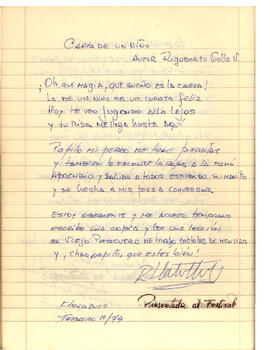 CARTA DE UN NIÑO
AUTOR RIGOBERTO
¡OH QUE MAGIA, QUE SUEÑO ES LA CARTA!
LA DE UN NIÑO DE UN CURATO FELIZ
HOY TE VEO JUGANDO ALLA LEJOS
Y TU RISA ME LLEGA HASTA AQUÍ.
PAPITO MI PERRO ME TRAE PIEDRITAS
Y TAMBIEN LE ESCONDE LA ROPA A LA MAMÁ
APRENDIO Y SALUDA A TODOS ESTIRANDO SU MANITO
Y SE HECHA A MIS PIES A CONVERSAR.
ESTOY OBEDIENTE Y ME ACUESTO TEMPRANO
ESCRIBO UNA COPIA Y LEO UNA LECCIÓN
EL VIEJO PASCUERO ME TRAJO PISTOLAS DE MENTIRA
Y, ¡CHAO PAPITO, QUE ESTES BIEN!
CHACABUCO
FEBRERO 11/74
Presentada al Festival